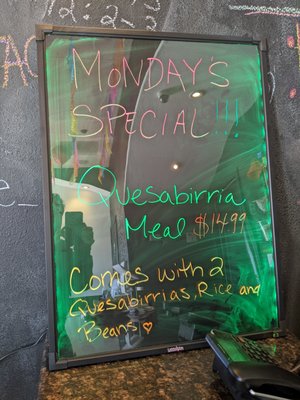 MONDAY'S
SPECIAL!!!
Quesabirria
Meal $14.99
Comes with 2
Quesabirrias, Rice and
Beans